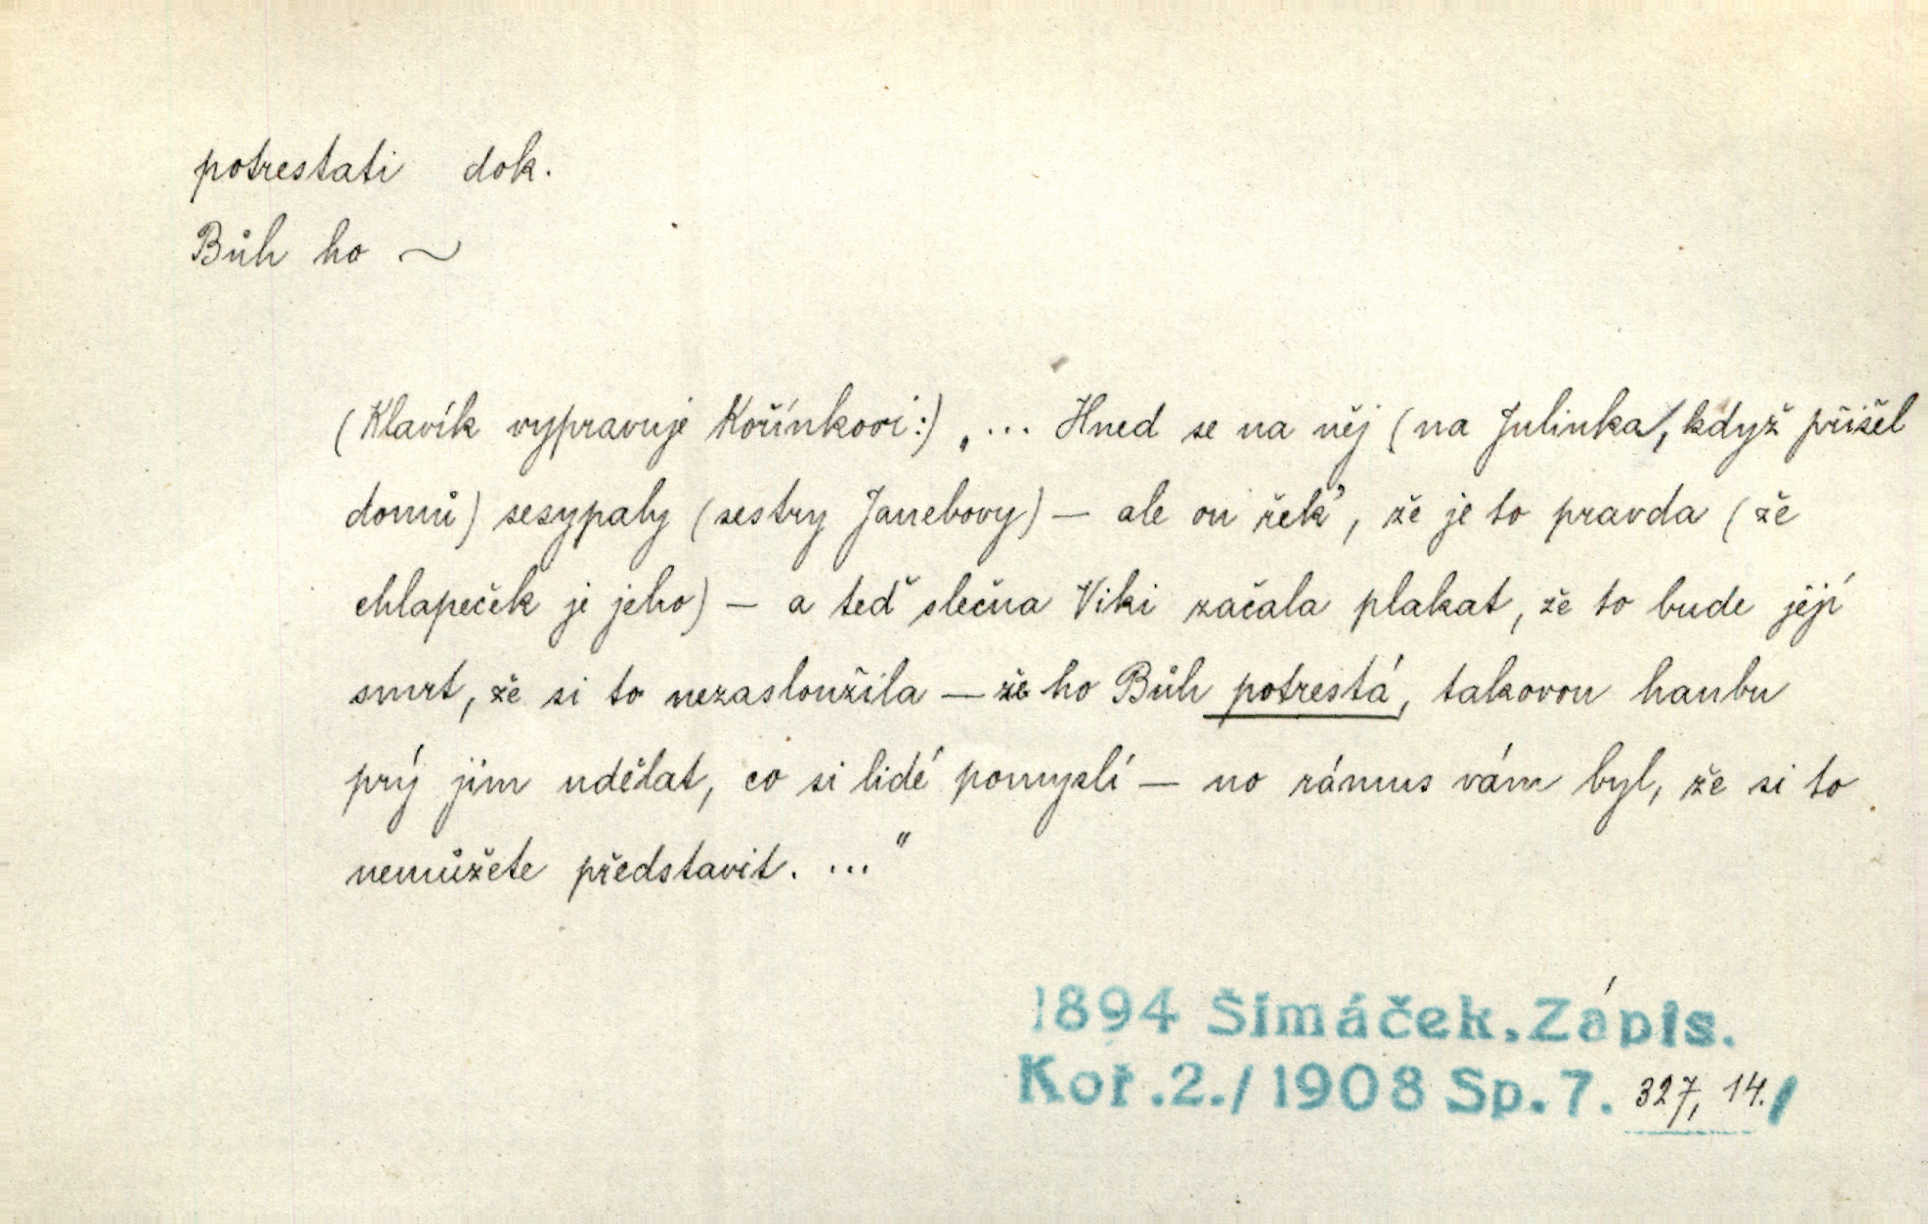 potrestati dok.
Bůh ho ~
(Klavík vypravuje Kořínkovi:) „... Hned se na něj (na Julinka, když přišel
domů) sesypaly (sestry Janebovy) — ale on řek', že je to pravda (že
chlapeček je jeho) — a teď slečna Viki začala plakat, že to bude její
smrt, že si to nezasloužila — že ho Bůh potrestá, takovou hanbu
prý jim udělat, co si lidé pomyslí — no rámus vám byl, že si to
nemůžete představit. ..."
1894 Šimáček, Zápis.
Koř.2./1908 Sp.7. 327, 14./